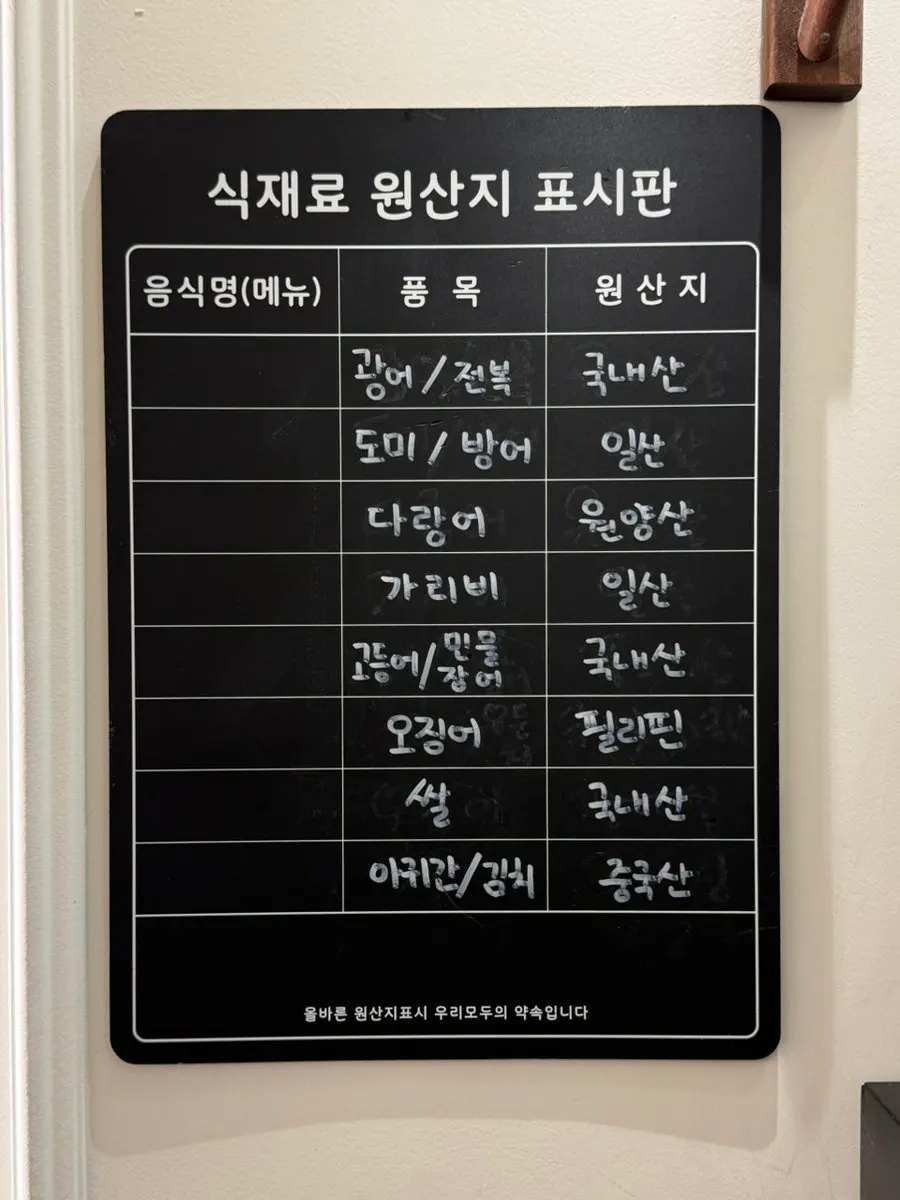 식재료 원산지 표시판
음식명(메뉴) 품 목 원 산 지
광어/전복 국내산
도미/방어 일산
다랑어 원양산
가리비 일산
고등어/민물장어 국내산
오징어 필리핀
쌀 국내산
아귀간/김치 중국산
올바른 원산지표시 우리모두의 약속입니다